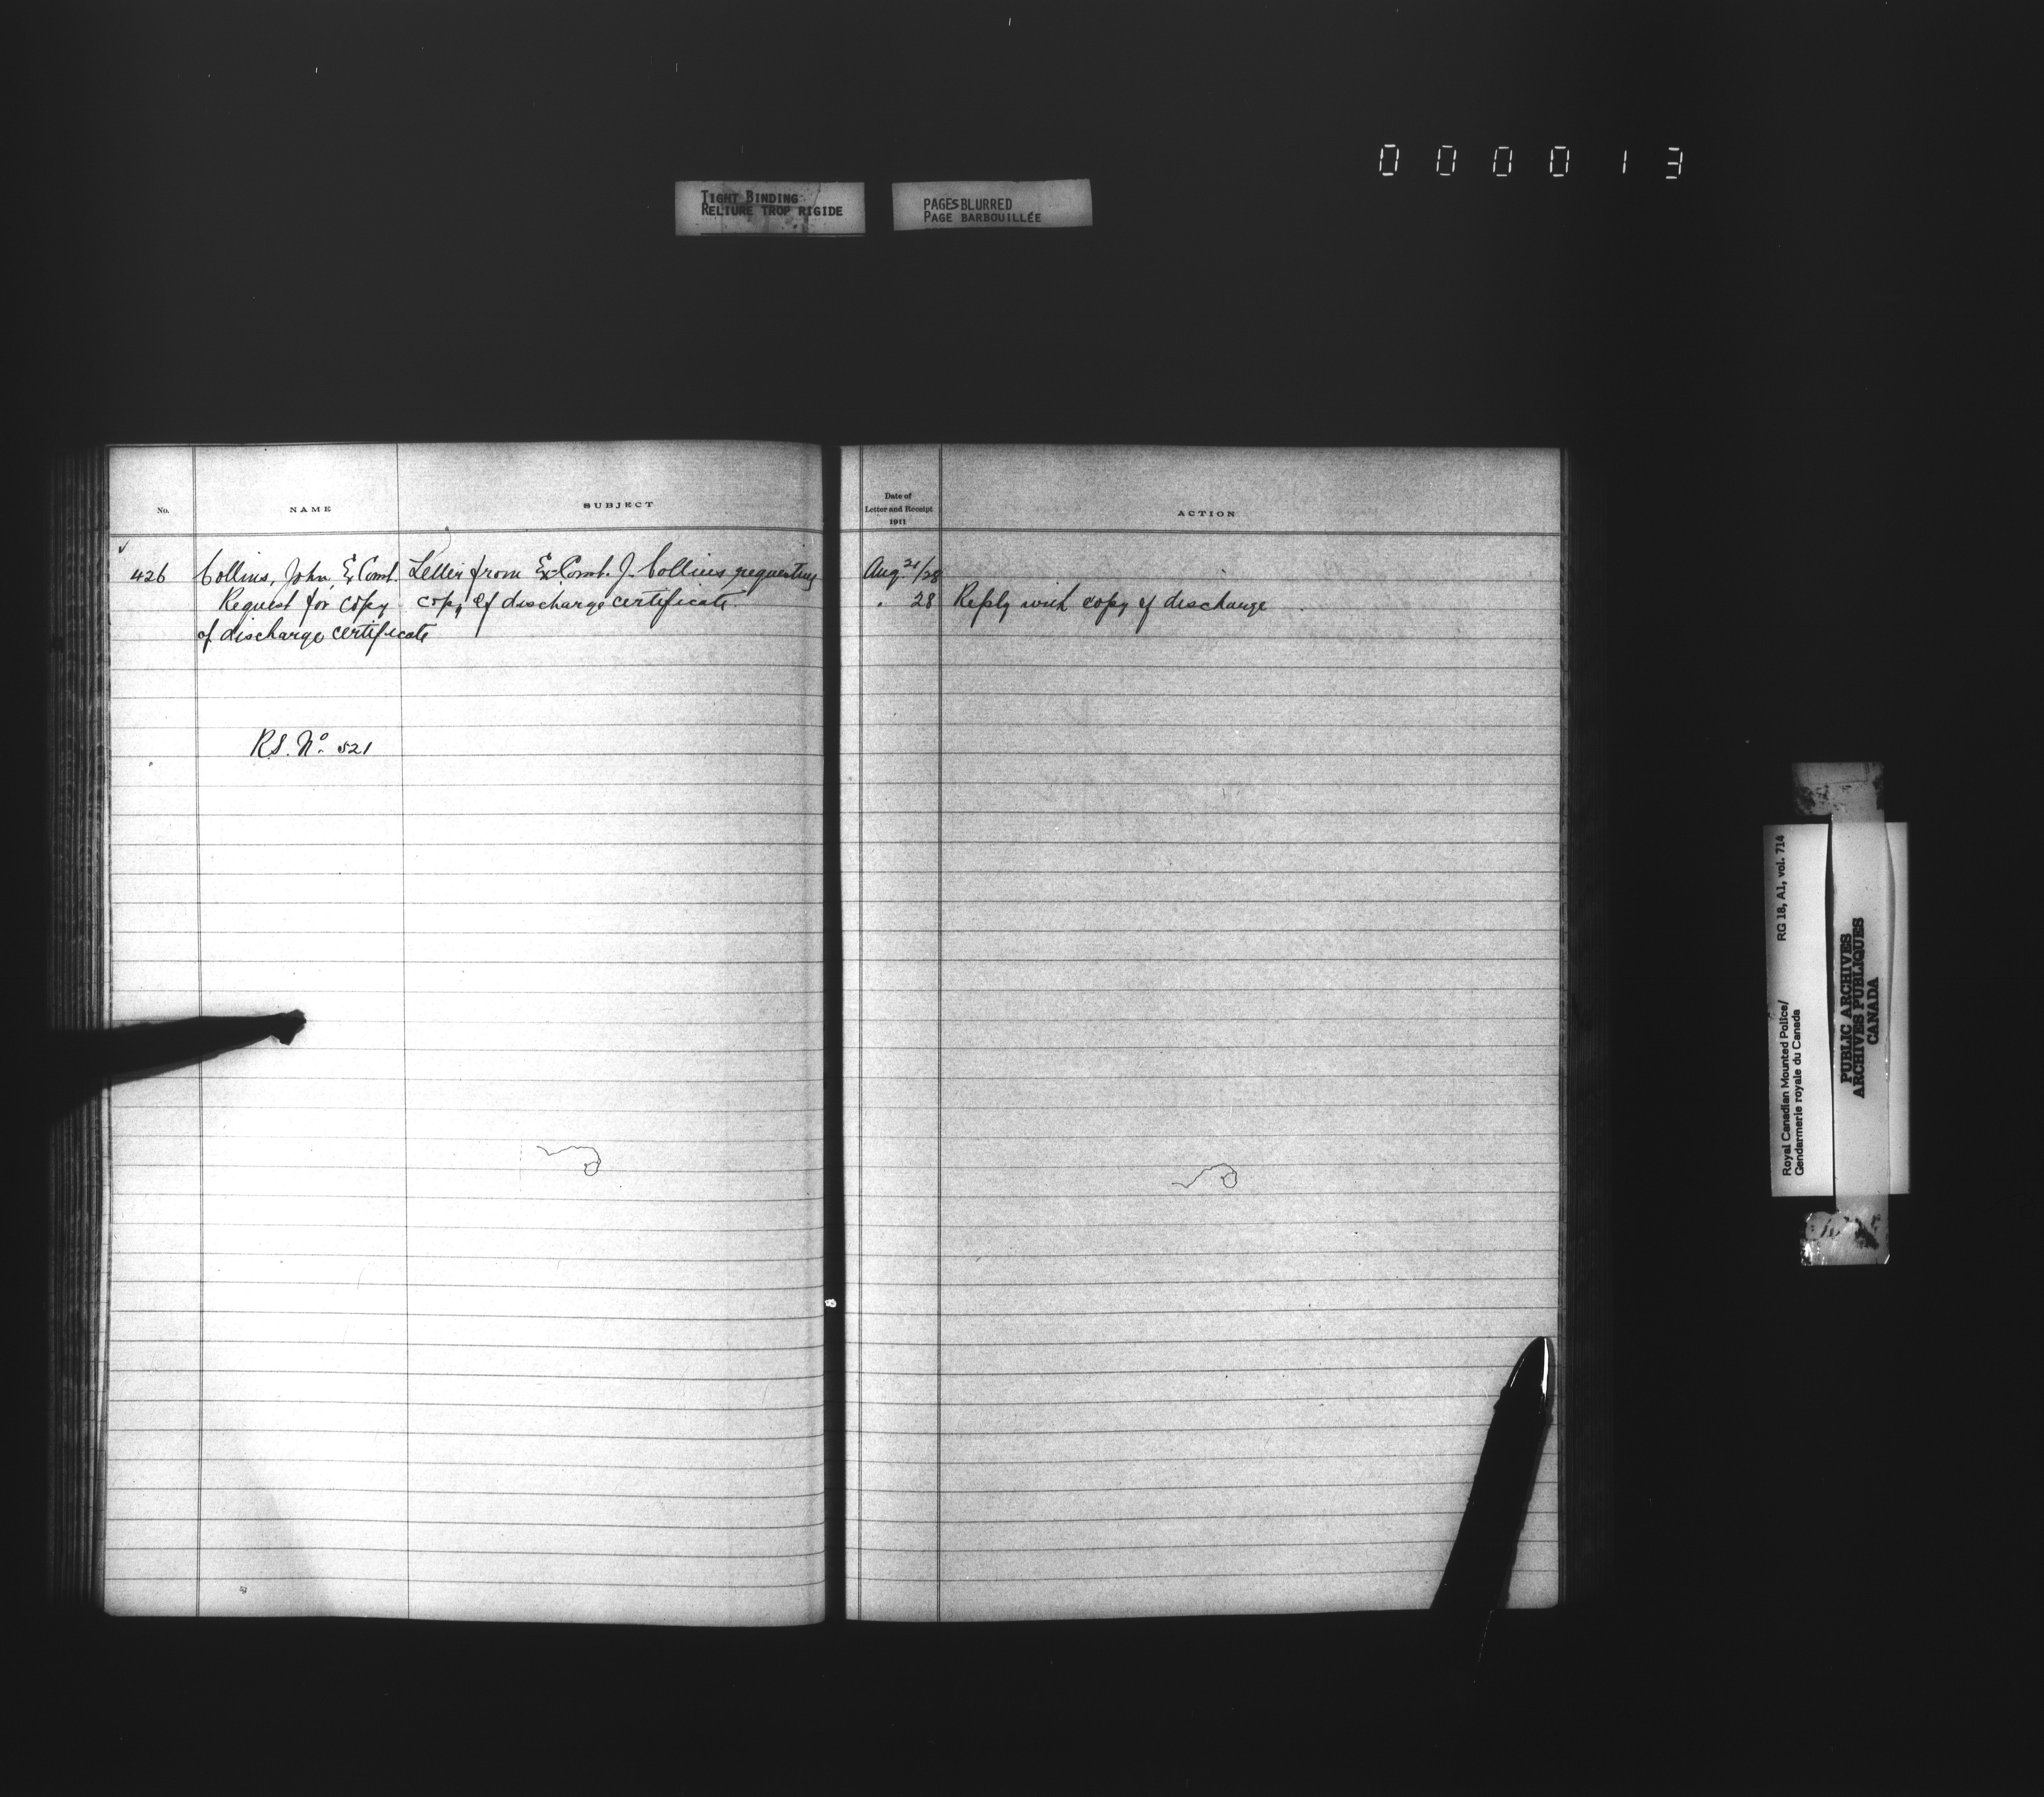 0 0 0 0 1 3
TIGHT BINDING
RELIURE TROP RIGIDE
PAGES BLURRED
PAGE BARBOUILLÉE
No.
NAME
SUBJECT
Date of
Letter and Receipt
1911
ACTION
426 Collins, John, Ex Const. Letter from Ex-Const. J. Collins requesting Aug. 21/28
Request for copy copy of discharge certificate. " 28 Reply with copy of discharge
of discharge certificate
R.S. No. 521
Royal Canadian Mounted Police/ RG 18, A1, vol. 714
Gendarmerie royale du Canada
PUBLIC ARCHIVES
ARCHIVES PUBLIQUES
CANADA